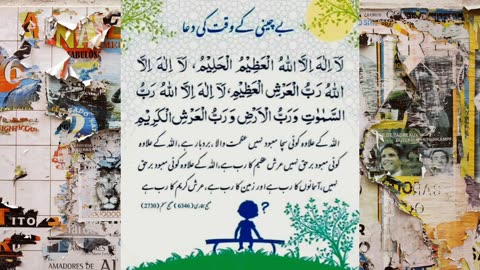 بے چینی کے وقت کی دعا
لَآ اِلٰهَ اِلَّا اللهُ الْعَظِيْمُ الْحَلِيْمُ، لَآ اِلٰهَ اِلَّا
اللهُ رَبُّ الْعَرْشِ الْعَظِيْمِ، لَآ اِلٰهَ اِلَّا اللهُ رَبُّ
السَّمٰوٰتِ وَرَبُّ الْاَرْضِ وَرَبُّ الْعَرْشِ الْكَرِيْمِ
اللہ کے علاوہ کوئی سچا معبود نہیں عظمت والا، بردبار ہے، اللہ کے علاوہ
کوئی معبود برحق نہیں عرش عظیم کا رب ہے، اللہ کے علاوہ کوئی معبود برحق
نہیں، آسمانوں کا رب ہے اور زمین کا رب ہے، عرش کریم کا رب ہے
صحیح بخاری (6346) صحیح مسلم (2730)
?
ITO
AMADORES DE